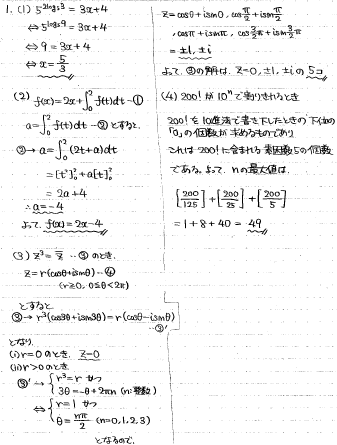 1. (1) 5^{2log_5 3} = 3x+4
⇔ 5^{log_5 9} = 3x+4
⇔ 9 = 3x+4
⇔ x = 5/3
(2) f(x) = 2x + ∫_0^2 f(t)dt ―①
a = ∫_0^2 f(t)dt ―② とすると、
② → a = ∫_0^2 (2t+a)dt
= [t²]_0^2 + a[t]_0^2
= 2a+4
∴ a = -4
よって、f(x) = 2x-4
(3) z³ = z̄ … ③ のとき、
z = r(cosθ+isinθ) …④
(r≥0, 0≤θ<2π)
とすると
③ → r³(cos3θ+isin3θ) = r(cosθ-isinθ)
…③'
となり、
(i) r=0 のとき、z=0
(ii) r>0 のとき
③' → { r³=r かつ
3θ = -θ+2πn (n:整数)
⇔ { r=1 かつ
θ = nπ/2 (n=0,1,2,3)
となるので、
z = cos0+isin0, cos π/2 + isin π/2
, cosπ+isinπ, cos 3/2 π + isin 3/2 π
= ±1, ±i
よって、③の解は、z=0, ±1, ±i の 5コ
(4) 200! が 10^n で割りきれるとき
200! を 10進法で書き下したときの下位の
「0」の個数が求めるものであり
これは 200! に含まれる素因数5の個数
である。よって、nの最大値は、
[200/125] + [200/25] + [200/5]
= 1+8+40 = 49